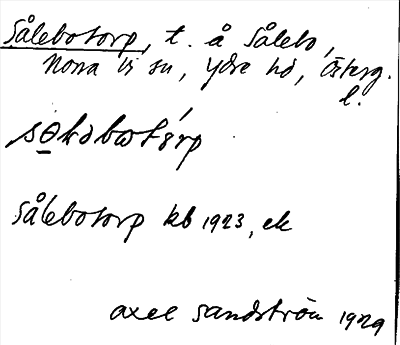 Sålebotorp, t. å Sålebo,
Norra Vi sn, Ydre hd, Österg.
l.
Sålebotorp kb 1923, ek
Axel Sandström 1929